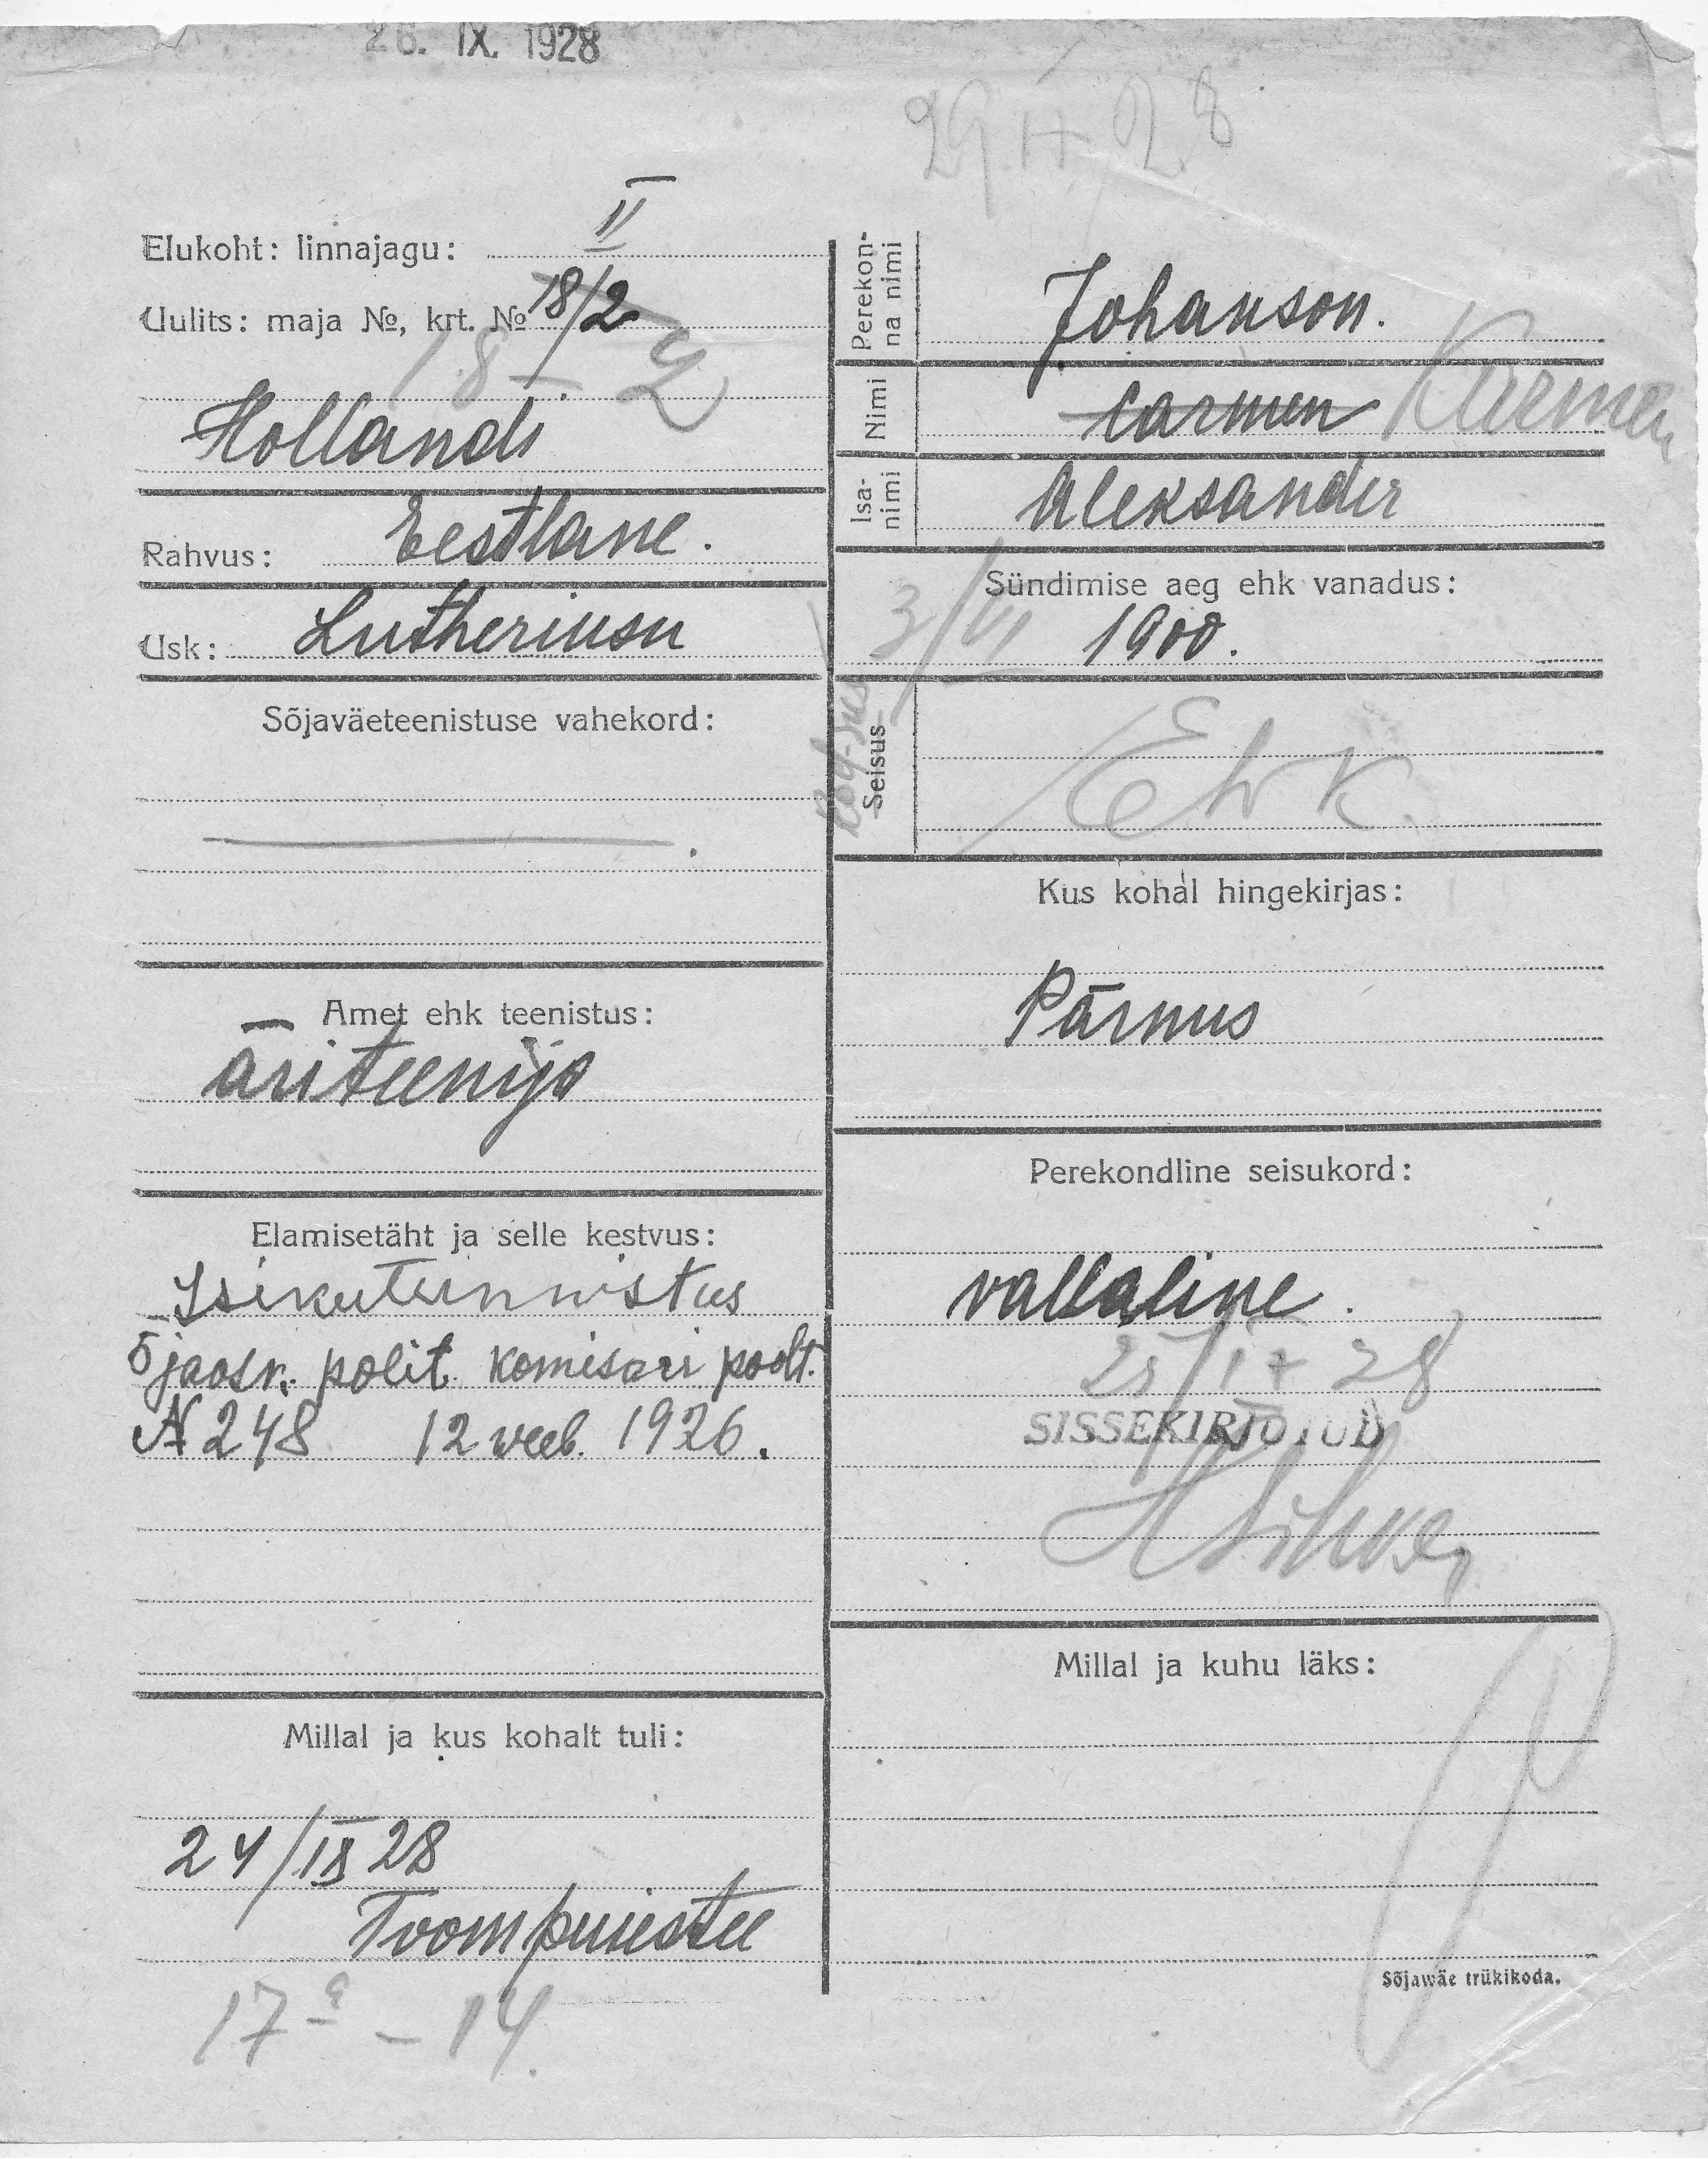 26. IX. 1928
29 IX 28
Elukoht: linnajagu: II
Uulits: maja №, krt. № 18/2
18 – 2
Hollandi
Rahvus: Eestlane.
Usk: Lutheriusu
Sõjaväeteenistuse vahekord:
Amet ehk teenistus:
äriteenija
Elamisetäht ja selle kestvus:
Isikutunnistus
5 jaosk. polit. komisari poolt.
N 248 12 veeb. 1926.
Millal ja kus kohalt tuli:
24/IX 28
Toompuiestee
17a – 14.
Perekonna nimi
Johanson.
Nimi
Carmen Karmen
Isanimi
Aleksander
Sündimise aeg ehk vanadus:
3/VI 1900.
Seisus
Kod-sus
Kus kohal hingekirjas:
Pärnus
Perekondline seisukord:
vallaline.
25/IX 28
SISSEKIRJOTUD
Millal ja kuhu läks:
Sõjawäe trükikoda.